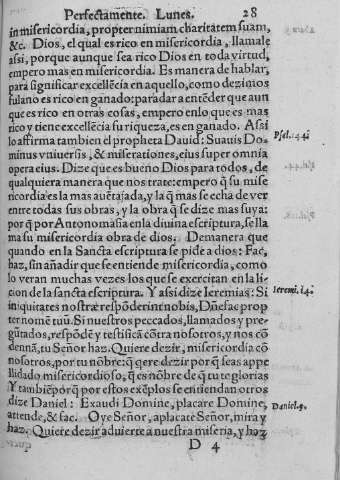 Perfectamente. Lunes. 28
in misericordia, propter nimiam charitatem suam,
&c. Dios, el qual es rico en misericordia, llamale
assi, porque aunque sea rico Dios en toda virtud,
empero mas en misericordia. Es manera de hablar,
para significar excellẽcia en aquello, como dezimos
fulano es rico en ganado: para dar a entẽder que aun
que es rico en otras cosas, empero en lo que es mas
rico y tiene excellẽcia su riqueza, es en ganado. Assi
lo affirma tambien el propheta Dauid: Suauis Do- Psal. 144.
minus vniuersis, & miserationes, eius super omnia
opera eius. Dize que es bueno Dios para todos, de
qualquiera manera que nos trate: empero q̃ su mise
ricordia es la mas auẽtajada, y la q̃ mas se echa de ver
entre todas sus obras, y la obra q̃ se dize mas suya:
por q̃ por Antonomasia en la diuina escriptura, se lla
ma su misericordia obra de dios. Demanera que
quando en la Sancta escriptura se pide a dios: Fac,
haz, sin añadir que se entiende misericordia, como
lo veran muchas vezes los que se exercitan en la li-
cion de la sancta escriptura. Y assi dize Ieremias: Si Ieremi. 14.
iniquitates nostræ respõderint nobis, Dñe fac prop
ter nomẽ tuũ. Si nuestros peccados, llamados y pre-
gũtados, respõdẽ y testificã cõtra nosotros, y nos cõ
denã, tu Señor haz. Quiere dezir, misericordia cõ
nosotros, por tu nõbre: q̃ q̃ere dezir por q̃ seas appe
llidado misericordioso, q̃ es nõbre de q̃ tu te glorias
Y tambiẽ porq̃ por estos exẽplos se entiendan otros
dize Daniel: Exaudi Domine, placare Domine, Daniel. 9.
attende, & fac. Oye Señor, aplacate Señor, mira y
haz. Quiere dezir aduierte a nuestra miseria, y haz
D 4